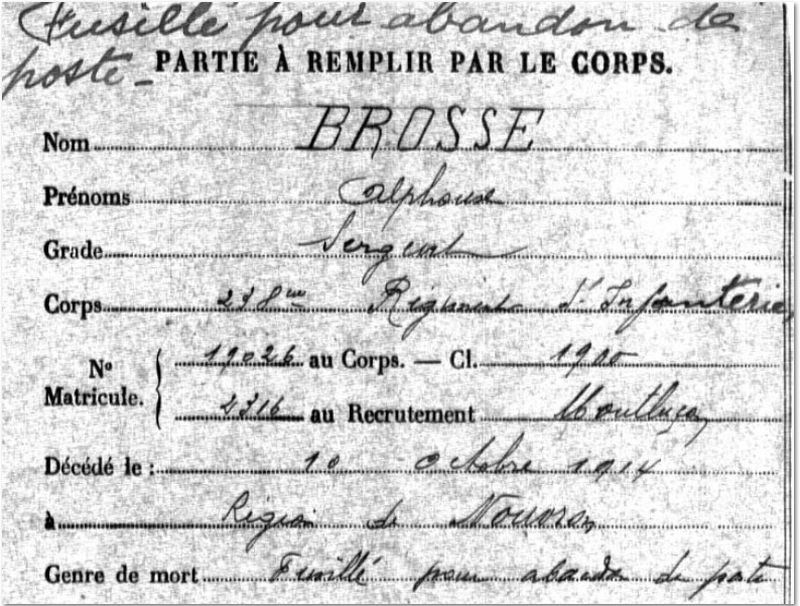 Fusillé pour abandon de
poste_
PARTIE À REMPLIR PAR LE CORPS.
Nom BROSSE
Prénoms Alphonse
Grade Sergent
Corps 238me Régiment d'Infanterie
No Matricule. 19026 au Corps. — Cl. 1900
2316 au Recrutement Montluçon
Décédé le : 10 octobre 1914
à Région de Nouvron
Genre de mort Fusillé pour abandon de poste